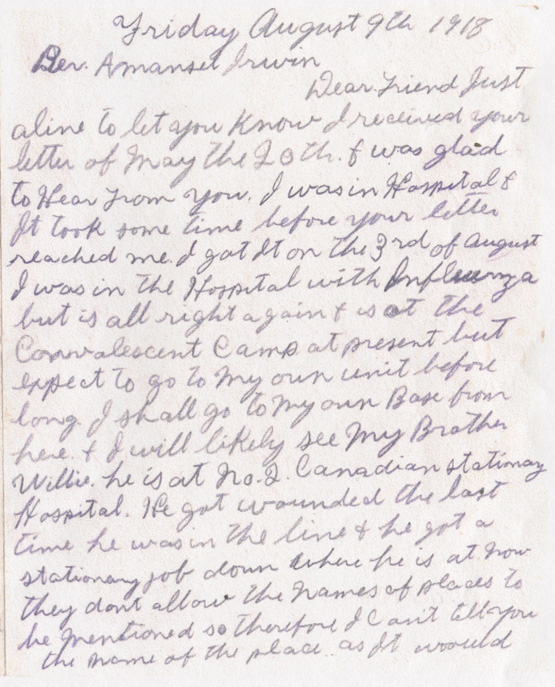 Friday August 9th 1918
Rev. Amanset Irwin
Dear Friend Just
aline to let you Know I received your
letter of May the 20th. & was glad
to Hear from you. I was in Hospital &
It took some time before your letter
reached me. I got It on the 3rd of August
I was in the Hospital with Influenza
but is all right again & is at the
Convalescent Camp at present but
expect to go to My own unit before
long. I shall go to My own Base from
here. & I will likely see My Brother
Willie. he is at No. 2. Canadian stationary
Hospital. He got wounded the last
time he was in the line & he got a
stationary job down where he is at now
they dont allow the names of places to
be mentioned so therefore I cant tell you
the name of the place. as It would